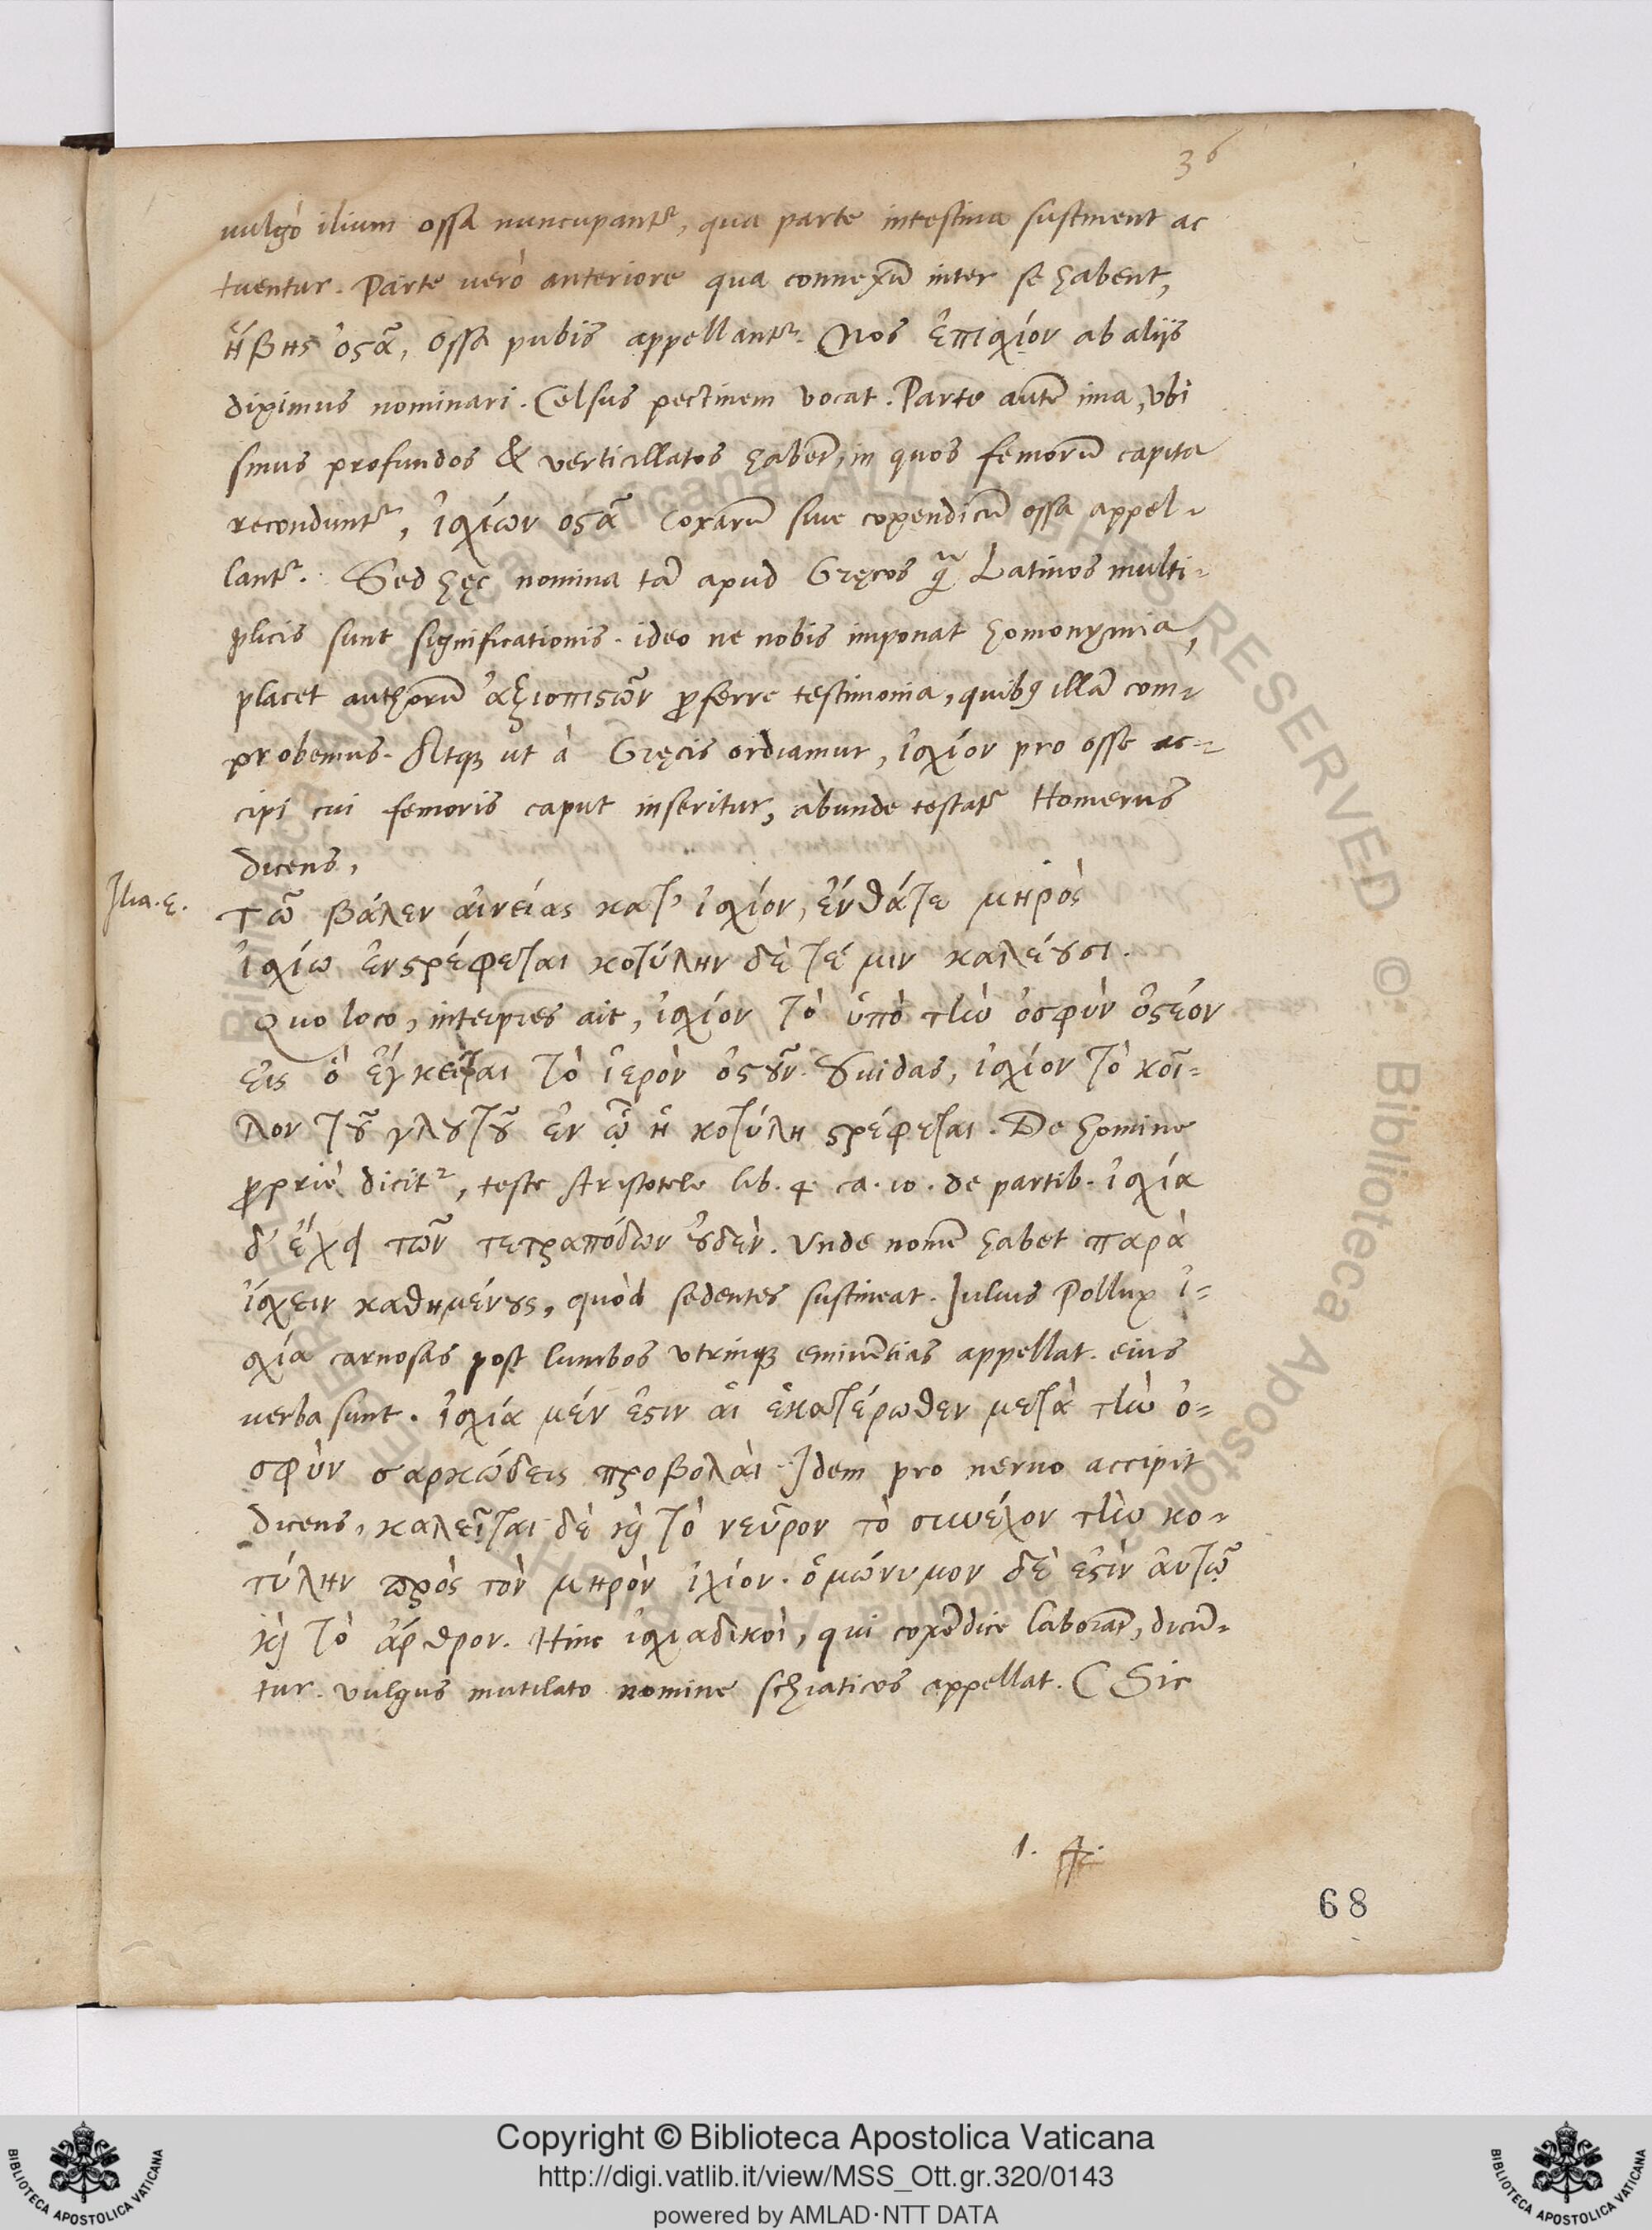 36
vulgò ilium ossa nuncupantr, qua parte intestina sustinent ac
tuentur. Parte uerò anteriore qua connexū inter se habent,
ἥβης ὀϛᾶ, ossa pubis appellantr. Nos ἐπισχίον ab aliis
diximus nominari. Celsus pectinem vocat. Parte autē ima, vbi
sinus profundos & verticillatos habēt, in quos femorū capita
reconduntr, ἰσχίων οϛᾶ coxarū siue coxendicū ossa appel-
lantr. Sed hęc nomina tā apud Gręcos q̃ Latinos multi-
plicis sunt significationis. ideo ne nobis imponat homonymia,
placet authorū ἀξιοπιϛῶν ꝓferre testimonia, quibꝰ illā com-
probemus. Atqꝫ ut à Gręcis ordiamur, ἰσχίον pro osse ac-
cipi cui femoris caput inseritur, abunde testatr Homerus
dicens,
Ilia. ε.
τῶ βάλεν αἰνείας κατ' ἰσχίον, ἔνθάτε μηρὸς
ἰσχίω ἐνϛρέφεται κοτύλην δὲ τέ μιν καλέȣσι.
Quo loco, interpres ait, ἰσχίον τὸ ὑπὸ τὴν ὀσφὺν ὀϛέον
εἰς ὁ ἔγκειται τὸ ἱερὸν ὀϛȣ̃ν. Suidas, ἰσχίον τὸ κοῖ-
λον τȣ̃ γλȣτȣ̃ ἐν ᾧ ἡ κοτύλη ϛρέφεται. De homine
ꝓpriè dicitr, teste Aristotele lib. 4. ca. 10. de partib. ἰσχία
δ' ἔχει τῶν τετραπόδων ȣ̓δὲν. Vnde nomē habet παρὰ
ἴσχειν καθημένȣς, quòd sedentes sustineat. Iulius Pollux ἰ-
σχία carnosas post lumbos vtrinqꝫ eminētias appellat. eius
uerba sunt. ἰσχία μέν ἐϛιν αἱ ἑκατέρωθεν μετὰ τὴν ὀ-
σφὺν σαρκώδεις προβολὰι. Idem pro neruo accipit
dicens, καλεῖται δὲ καὶ τὸ νεῦρον τὸ συνέχον τὴν κο-
τύλην πρὸς τὸν μηρὸν ἰσχίον. ὁμώνυμον δὲ ἐϛὶν ἀυτῷ
καὶ τὸ ἄρθρον. Hinc ἰσχιαδικοὶ, qui coxēdice laborāt, dicū-
tur. vulgus mutilato nomine schiaticos appellat. ( Sic
68
© Biblioteca Apostolica Vaticana ALL RIGHTS RESERVED
Copyright © Biblioteca Apostolica Vaticana
http://digi.vatlib.it/view/MSS_Ott.gr.320/0143
powered by AMLAD·NTT DATA
BIBLIOTECA APOSTOLICA VATICANA
BIBLIOTECA APOSTOLICA VATICANA